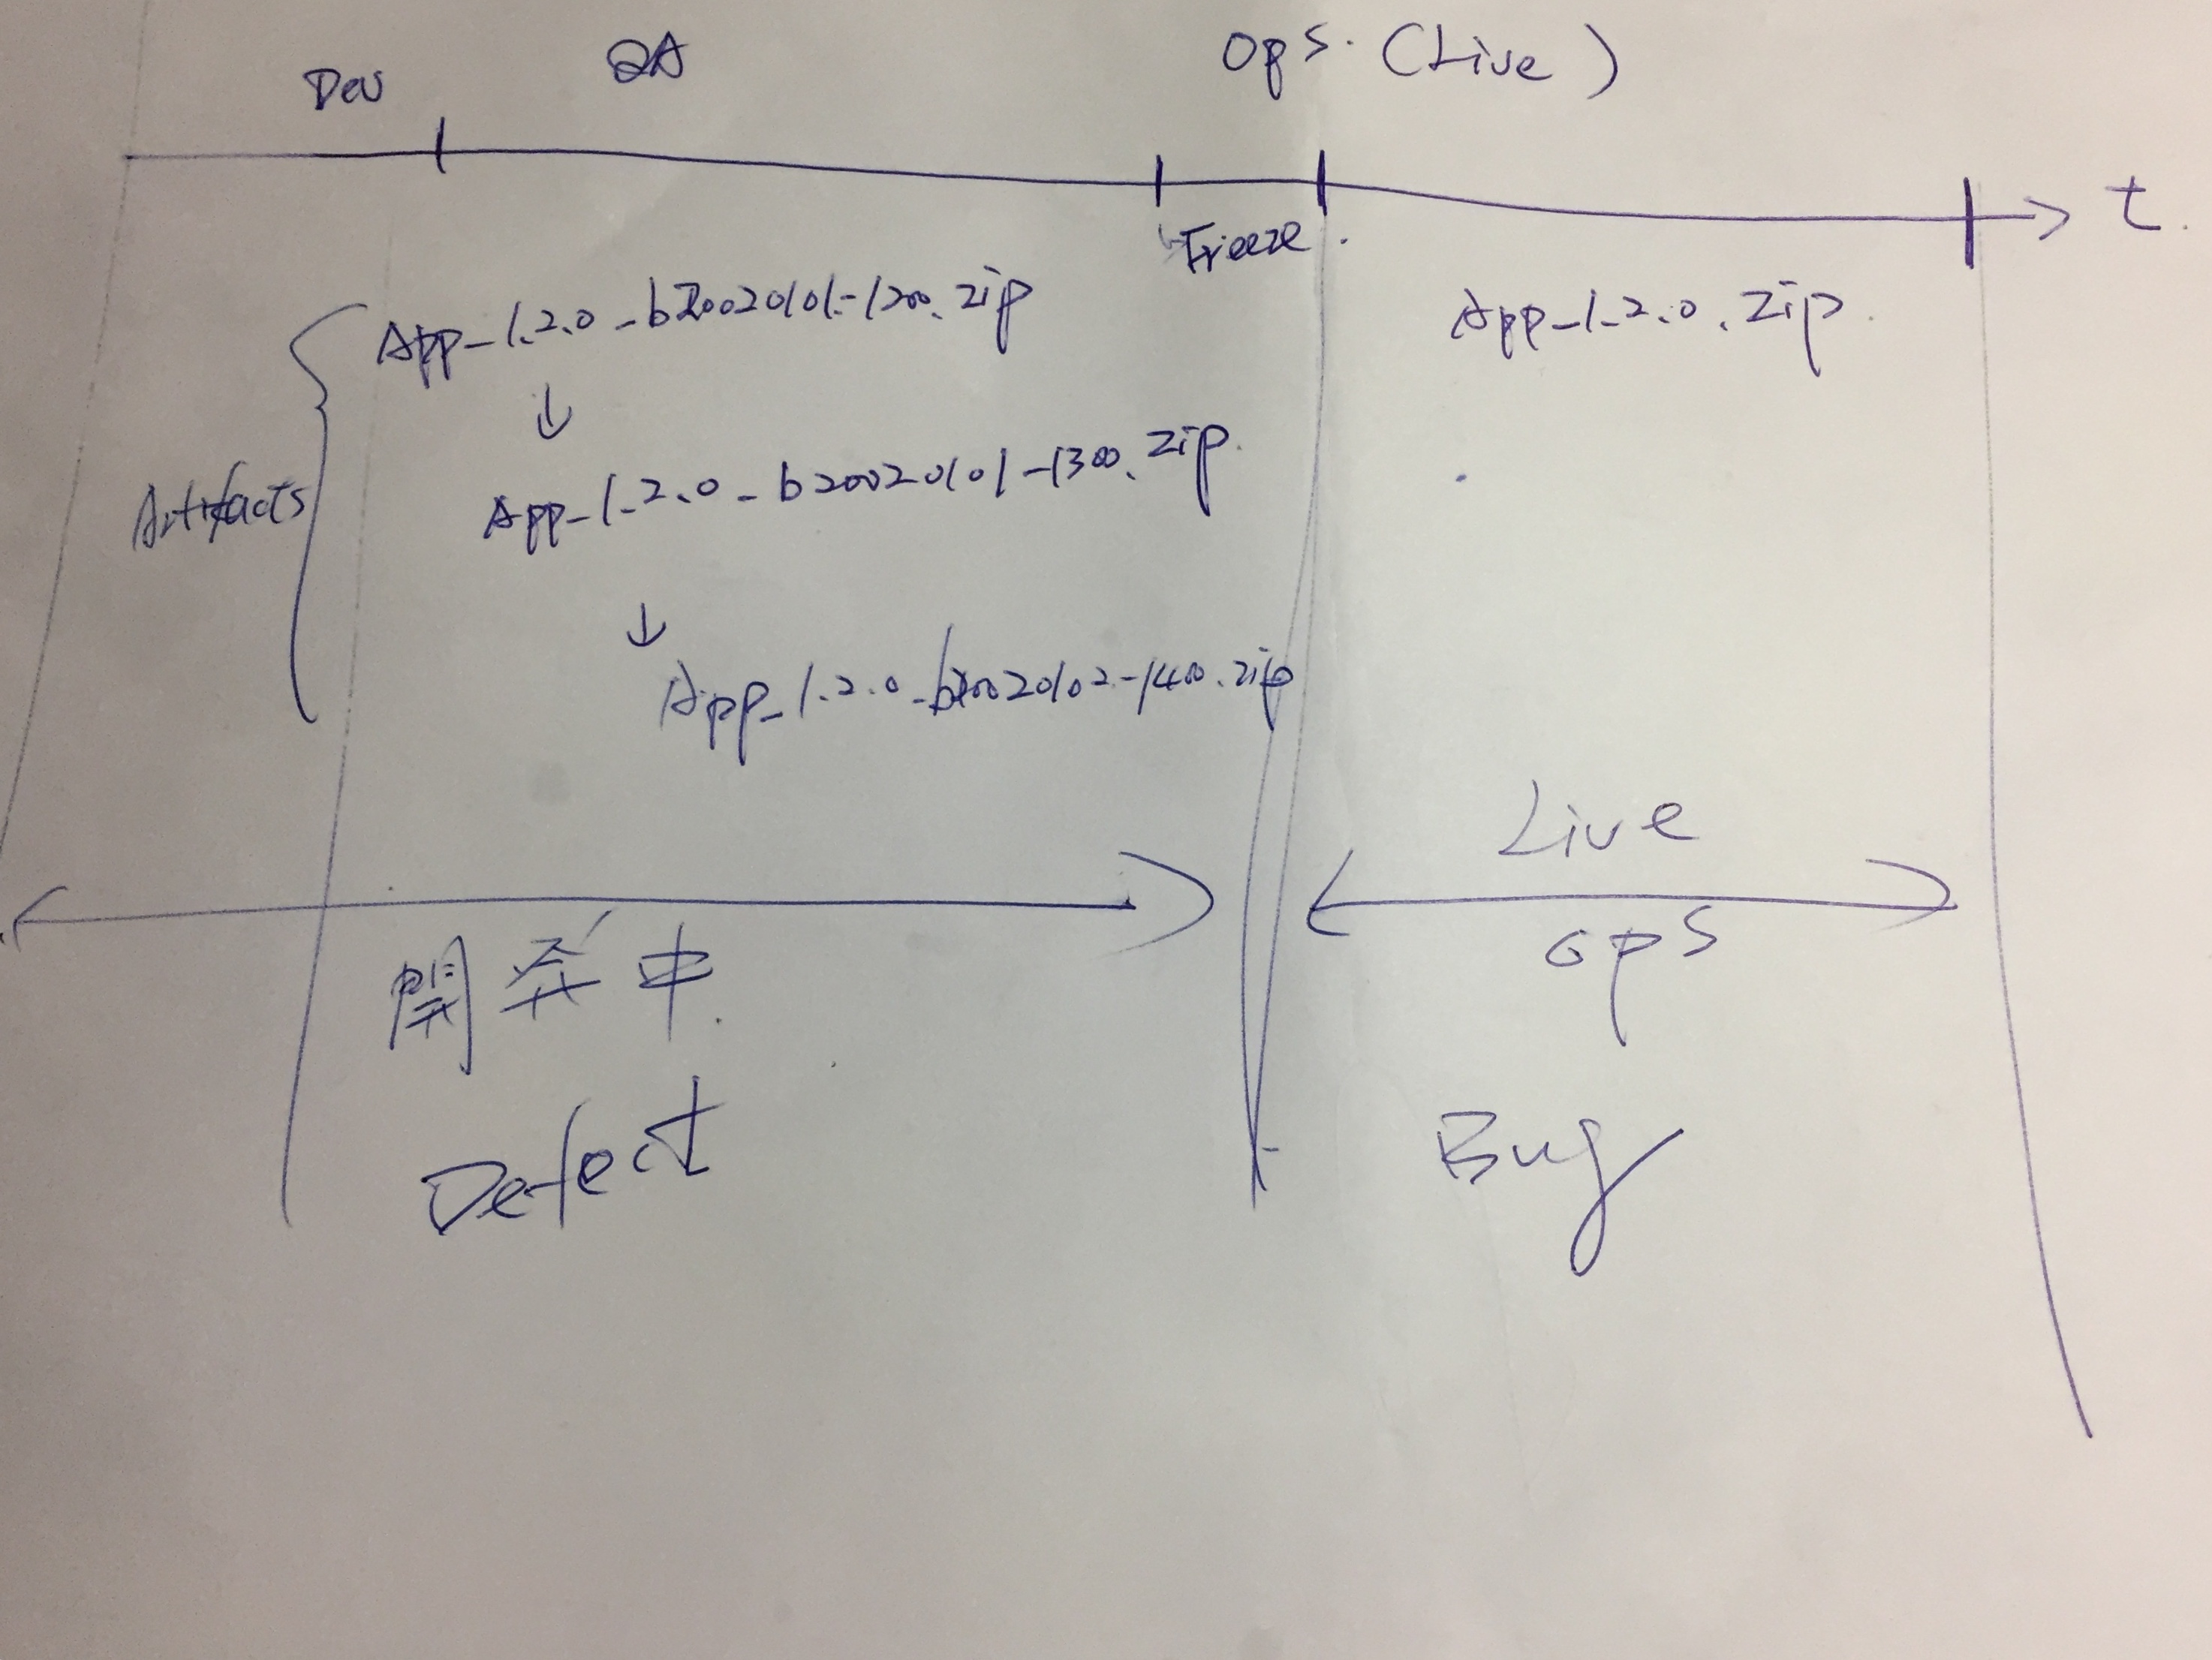 Dev
QA
Ops. (Live)
t.
Freeze.
App_1.2.0_b20020101-1200.zip
↓
App_1.2.0_b20020101-1300.zip.
↓
App_1.2.0_b20020102-1400.zip
Artifacts
App_1.2.0.zip.
開発中.
Defect
Live
Ops
Bug